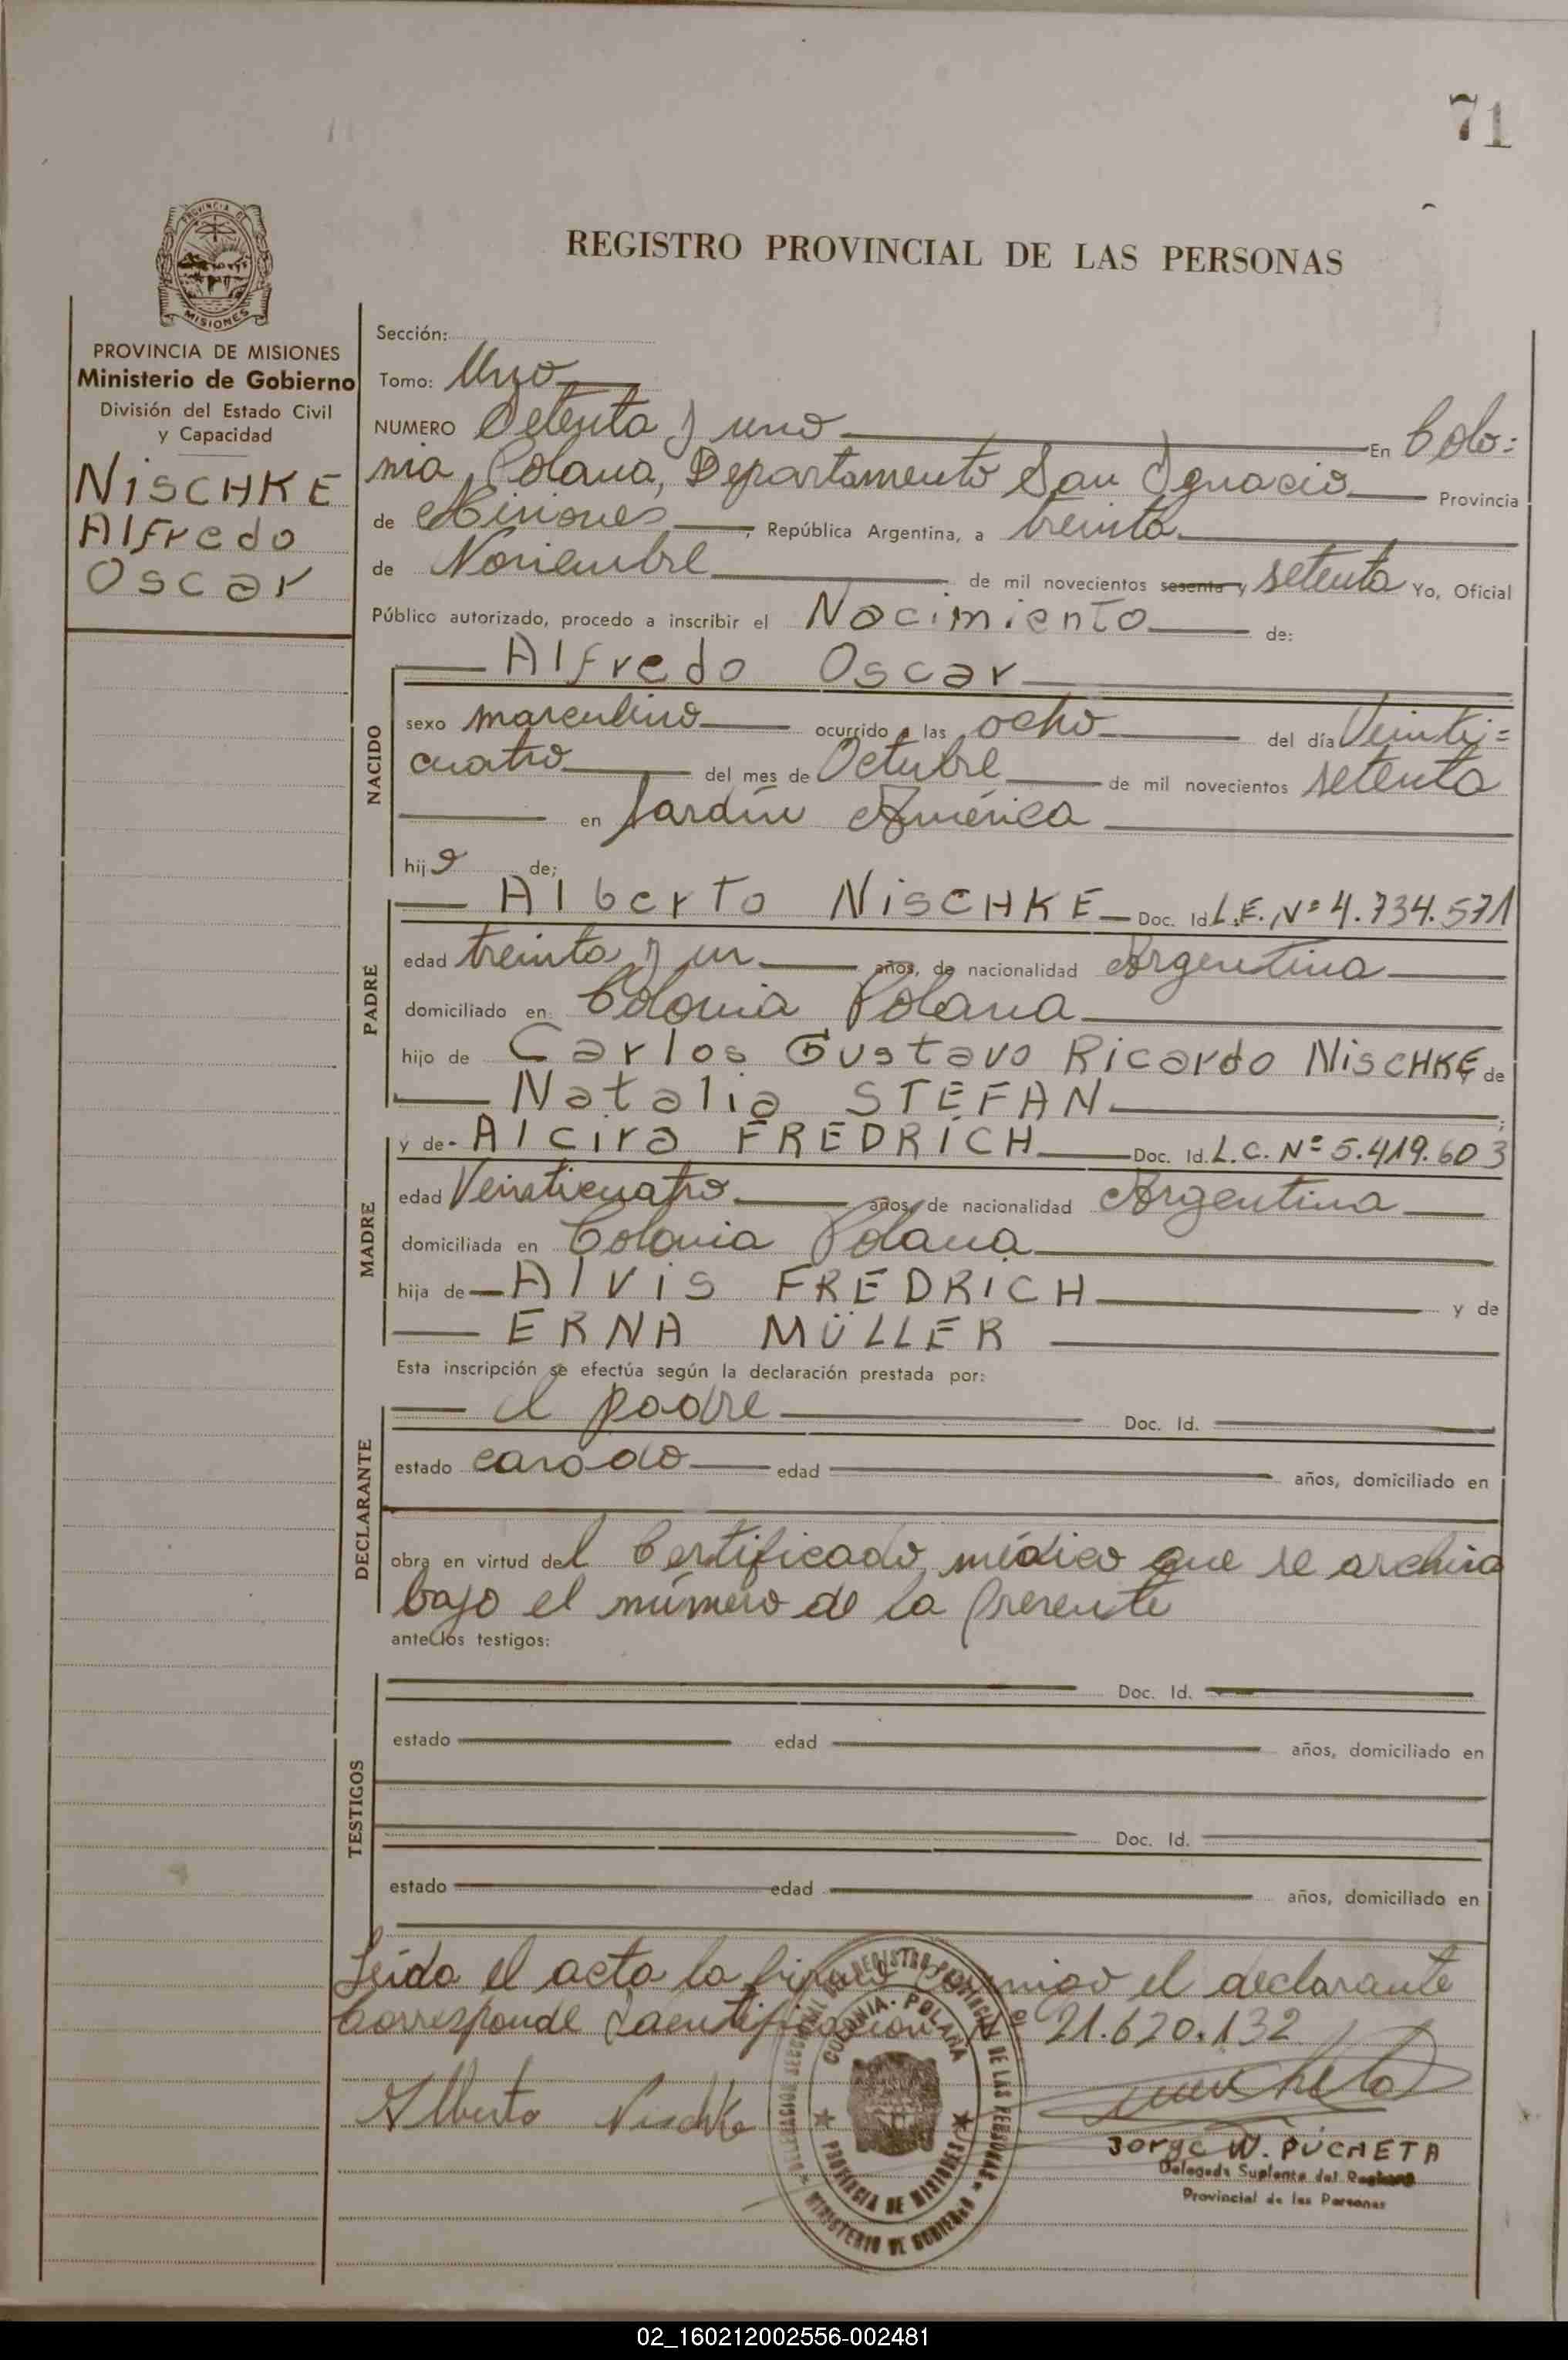 71
PROVINCIA DE
MISIONES
REGISTRO PROVINCIAL DE LAS PERSONAS
PROVINCIA DE MISIONES
Ministerio de Gobierno
División del Estado Civil
y Capacidad
NiSCHKE
Alfredo
Oscar
Sección:
Tomo: Uno
NUMERO Setenta y uno En Colo=
nia Polana, Departamento San Ignacio Provincia
de Misiones, República Argentina, a treinta
de Noviembre de mil novecientos sesenta y setenta Yo, Oficial
Público autorizado, procedo a inscribir el Nacimiento de:
Alfredo Oscar
NACIDO
sexo masculino ocurrido a las ocho del día Veinti=
cuatro del mes de Octubre de mil novecientos setenta
en Jardín América
hijo de;
PADRE
Alberto NiSCHKE Doc. Id L.E. Nº 4.734.571
edad treinta y un años, de nacionalidad Argentina
domiciliado en Colonia Polana
hijo de Carlos Gustavo Ricardo NiSCHKE de
Natalia STEFAN;
MADRE
y de Alcira FREDRiCH Doc. Id. L.C. Nº 5.419.603
edad Veinticuatro años, de nacionalidad Argentina
domiciliada en Colonia Polana
hija de Alvis FREDRiCH y de
ERNA MÜLLER
Esta inscripción se efectúa según la declaración prestada por:
DECLARANTE
el padre Doc. Id.
estado casado edad años, domiciliado en
obra en virtud del Certificado médico que se archiva
bajo el número de la presente
ante los testigos:
TESTIGOS
Doc. Id.
estado edad años, domiciliado en
Doc. Id.
estado edad años, domiciliado en
Leída el acta la firma conmigo el declarante
Corresponde Identificación Nº 21.620.132
DELEGACION SECCIONAL DEL REGISTRO PROVINCIAL DE LAS PERSONAS
COLONIA POLANA
PROVINCIA DE MISIONES
MINISTERIO DE GOBIERNO
Alberto Nischke
Jorge W. PUCHETA
Delegado Suplente del Registro
Provincial de las Personas
02_160212002556-002481